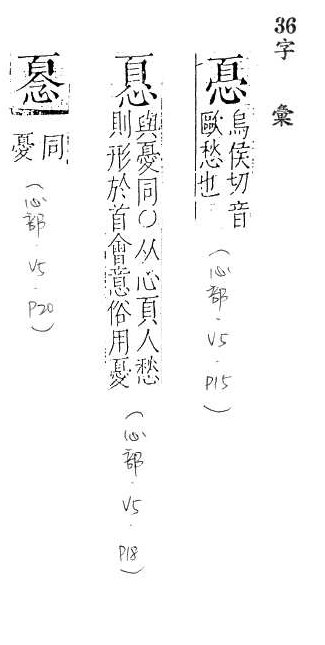 36字彙
烏侯切音
歐愁也
(心部.V5.P15)
與憂同○从心頁人愁
則形於首會意俗用憂
(心部.V5.P18)
同
憂
(心部.V5.P20)